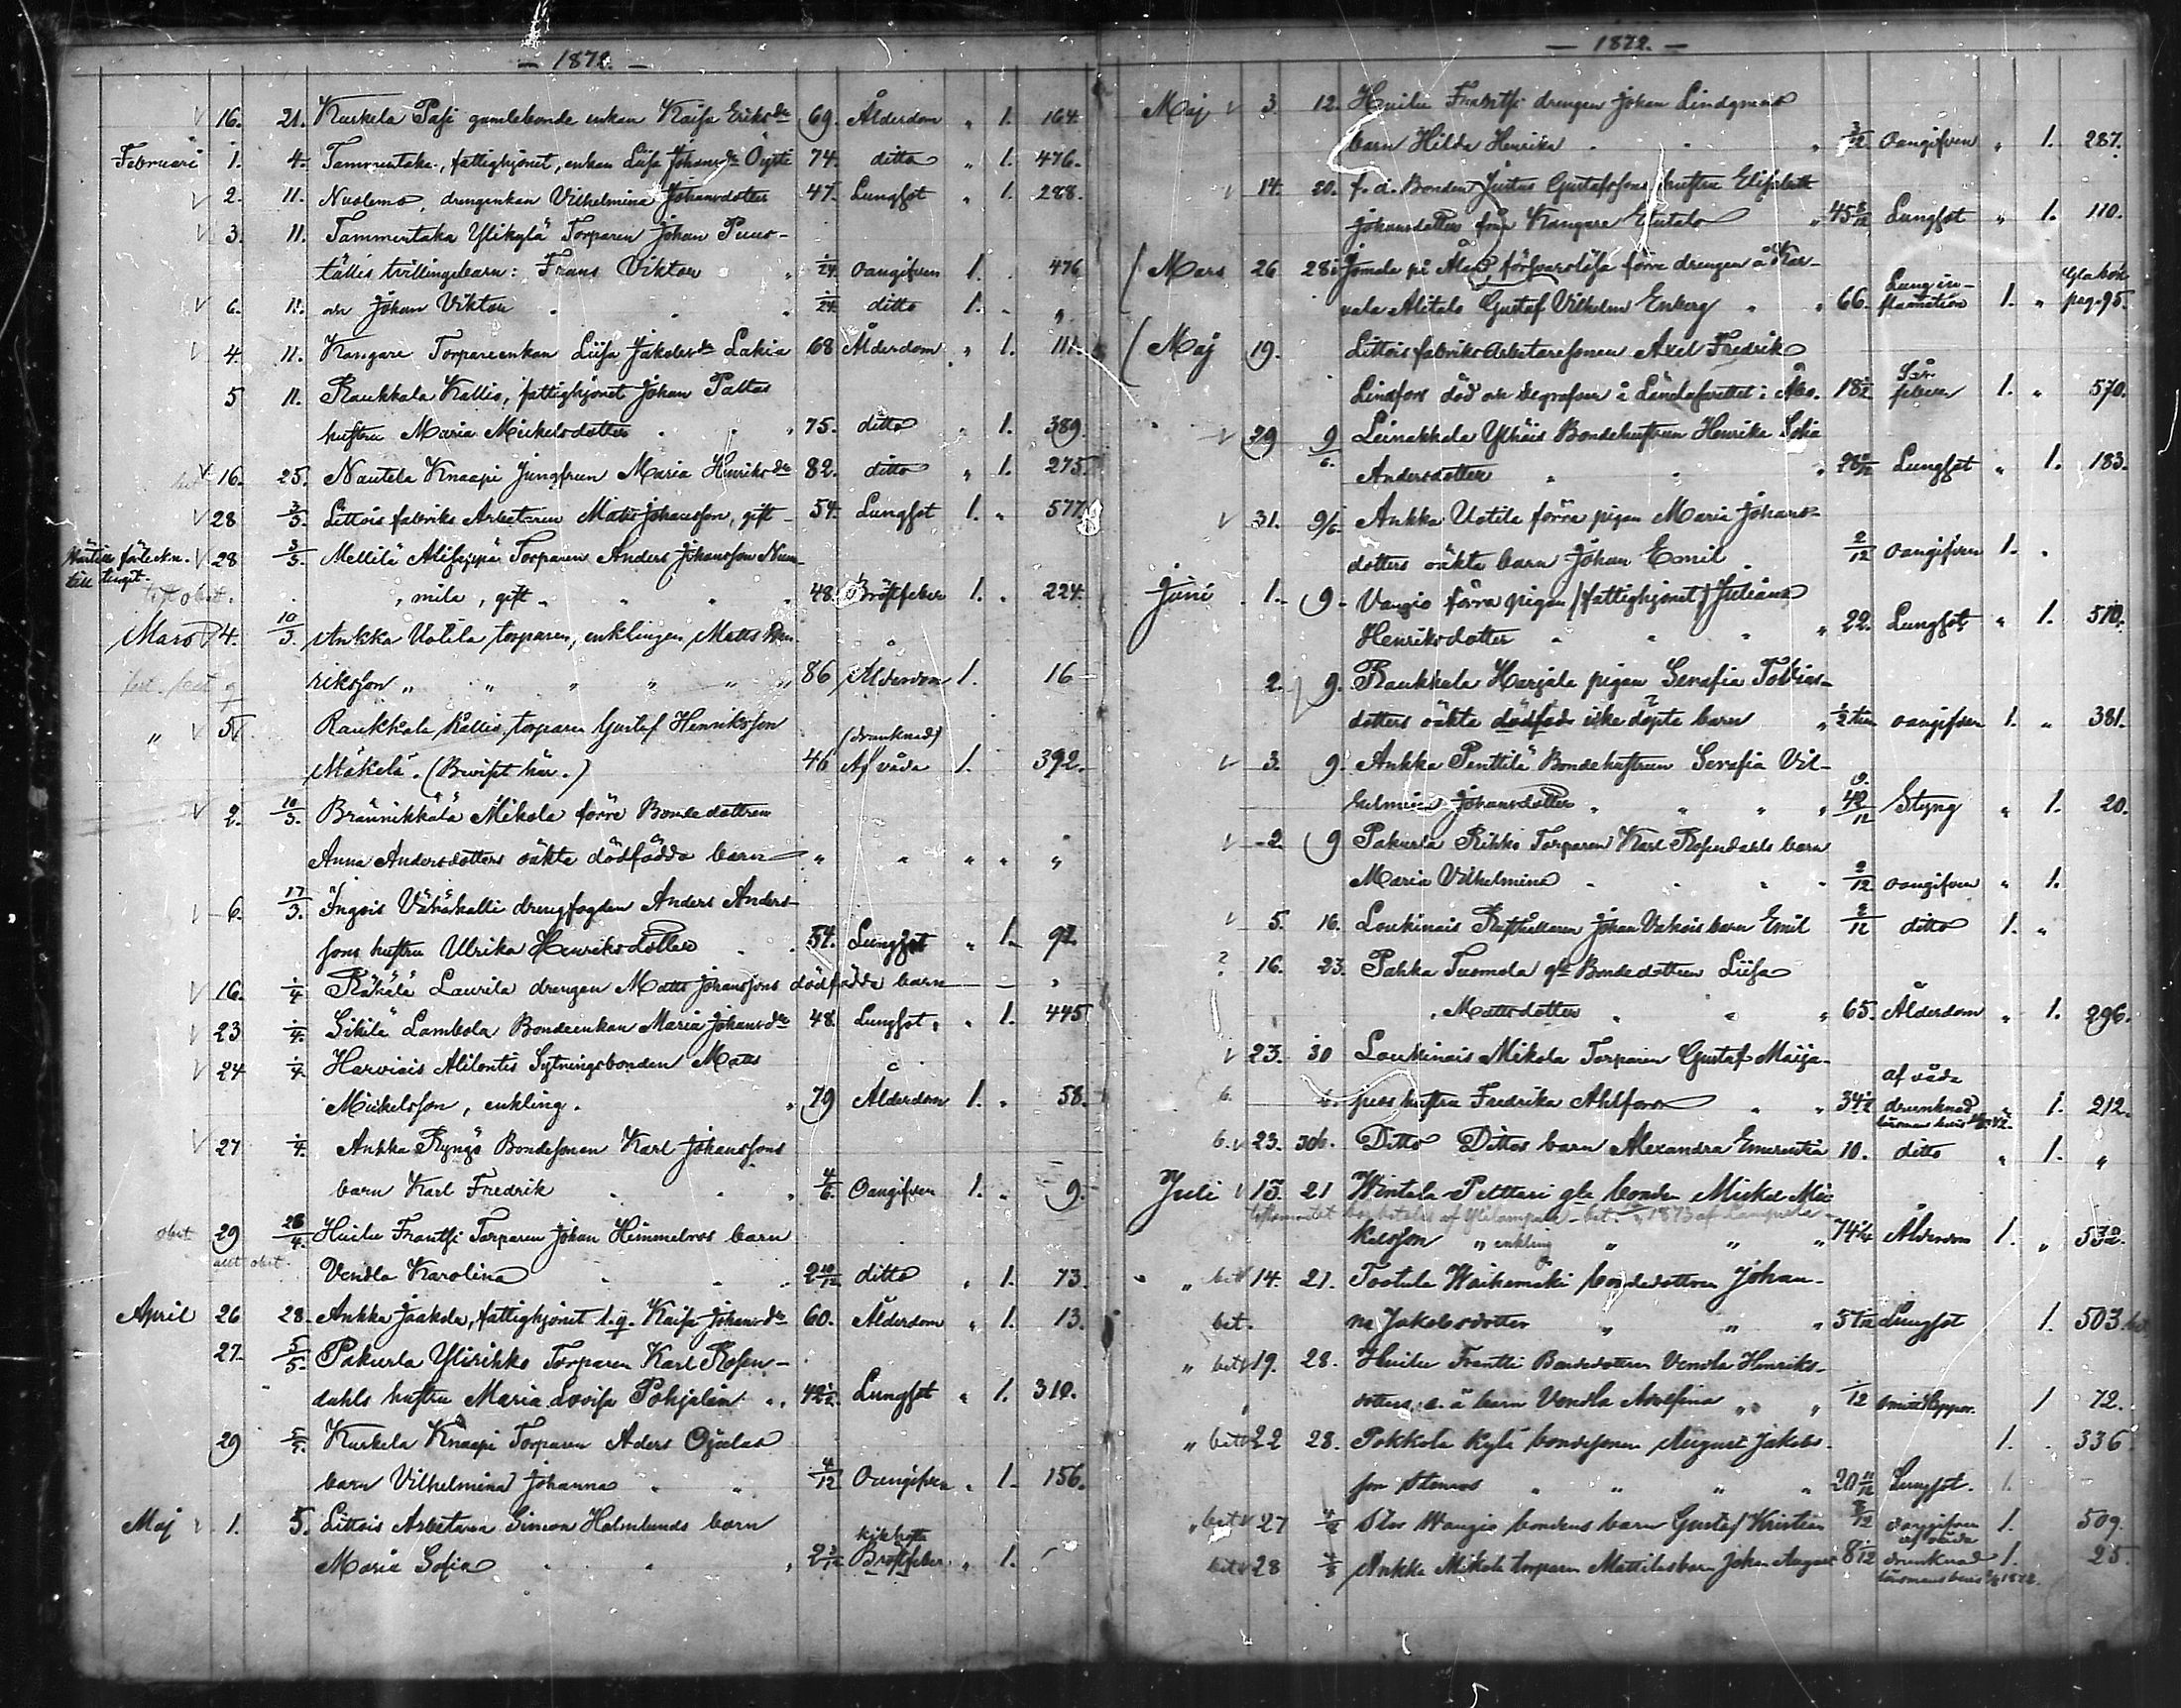 — 1872. —
16. 21. Kurkela Pasi gamlebonde enkan Kaisa Eriksdr 69. Ålderdom " 1. 164.
Februari 1. 4. Tammentaka, fattighjonet, enkan Liisa Johansdr 74. ditto " 1. 476.
2. 11. Nuolemo, drengenkan Vilhelmina Johansdotter 47. Lungsot " 1. 288.
3. 11. Tammentaka Ylikylä Torparen Johan Puus-
tällis tvillingebarn: Frans Viktor 1/24 oangifven 1. 476
6. 11. och Johan Viktor 1/24 ditto 1. "
4. 11. Kangare Torpareenkan Liisa Jakobsdr Lakia 68 Ålderdom " 1. 111.
5 11. Raukkala Kallis, fattighjonet Johan Paltas
hustru Maria Mickelsdotter 75. ditto 1. 389.
16. 25. Nautela Knaapi Jungfrun Maria Henriksdr 82. ditto " 1. 275.
28 3/3. Littois fabriks Arbetaren Matts Johansson, gift 54. Lungsot 1. " 577.
28 3/3. Mellilä Aliseppä Torparen Anders Johansson Num-
till tenget.
mila, gift 48. Bröstfeber 1. 224.
Mars 4. 10/3 Ankka Uotila torparen, enklingen Matts Hen-
riksson " " " " " 86 Ålderdom 1. 16
" 5 Raukkala Kallis, torparen Gustaf Henriksson (drunknad)
Mäkelä. (Bevist här.) 46 Af våda 1. 392.
2. 10/3. Brännikkälä Mikola förre Bondedottren
Anna Andersdotters oäkta dödfödda barn " " " " "
6. 17/3. Ingois Vähäkalli drengfogden Anders Anders-
sons hustru Ulrika Henriksdotter 54. Lungsot " 1. 92.
16. 1/4 Räkälä Laurila drengen Matts Johanssons dödfödda barn — — "
23 1/4. Sikilä Lambola Bondeenkan Maria Johansdr 48. Lungsot. " 1. 445
24 1/4. Harviais Alilontis Sytningsbonden Matts
Mickelsson, enkling. 79 Ålderdom 1. " 58.
27 1/4. Ankka Ryngö Bondesonen Karl Johanssons
barn Karl Fredrik 4/6. Oangifven 1. " 9.
29 28/4. Huilu Franssi Torparen Johan Himmelros barn
Vendla Karolina 2 10/12 ditto " 1. 73.
April 26 28. Ankka Jaakola, fattighjonet l.q. Kaisa Johansdr 60. Ålderdom " 1. 13.
27. 5/5. Pakurla Ylirihko Torparen Karl Rosen-
dahls hustru Maria Lovisa Pohjalin " 42 1/2. Lungsot " 1. 310.
29 5/5. Kurkela Knaapi Torparen Aders Ojalas
barn Vilhelmina Johanna 4/12 Oangifven " 1. 156.
Maj 1. 5. Littois Arbetaren Simon Holmlunds barn kikhosta
Maria Sofia Bröstfeber " 1.
— 1872. —
Maj 3. 12. Huilu Franssi drengen Johan Lindgrens
barn Hilda Henrika 3/12. Oangifven " 1. 287.
14. 20. f. d. Bonden Justus Gustafssons hustru Elisabeth
Johansdotter från Kangare Eutalo " 45 8/12 Lungsot " 1. 110.
Mars 26 28 Jomala på Åland, försvarslösa förre drengen å Kar-
vala Alitalo Gustaf Vilhelm Enberg " 66. Lungin-
flamation 1. " pag. 95.
Maj 19. Littois fabriks Arbetaresonen Axel Fredrik
Lindfors död och begrafven å Länelasarettet i Åbo. 18 1/2 feber 1. " 570.
29 9/6. Leinakkala Ylhäis Bondehustrun Henrika Sofia
Andersdotter " Lungsot " 1. 183.
31. 9/6. Ankka Uotila förra pigan Maria Johans-
dotters oäkta barn Johan Emil 2/12 oangifven 1. "
Juni 1. 9. Vangio förra pigan (fattighjonet) Juliana
Henriksdotter " 22. Lungsot " 1. 510.
2. 9. Raukkala Harjala pigan Serafia Tobias-
dotters oäkta dödfödd icke döpte barn 1/2 tim oangifven 1. " 381.
3. 9. Ankka Penttilä Bondehustrun Serafia Vil-
helmina Johansdotter " Styng " 1. 20.
2 9 Pakurla Rihko Torparen Karl Rosendahls barn
Maria Vilhelmina 2/12 oangifven " 1.
5. 16. Loukinais Rusthållaren Johan barn Emil 2/12 ditto 1. "
? 16. 23. Pahka Tuomola gla Bondedottren Liisa
Mattsdotter " 65. Ålderdom " 1. 296.
23. 30 Loukinais Mikola Torparen Gustaf Maija-
hustru Fredrika Ahlfors " 34 af våda
drunknad " 1. 212.
b. 23. 30 b. Ditto Dittos barn Alexandra Emerentia 10. ditto " 1. "
Juli 15. 21 Wintala Pelttari gla bonden Mickel Mic-
kelsson " enkling " " Ålderdom 1. " 532.
" bet 14. 21. Tootula Waihemäki bondedottren Johan-
bet. na Jakobsdotter " " " Lungsot 1. 503
" bet 19. 28. Huilu Frantti Bondedottren Vendla Henriks-
dotters o. ä barn Vendla Adolfina " " 1/12 smittkoppor. 1 72.
" bet 22 28. Pokkola Kylä bondesonen August Jakobs-
son Stenros " " " " 20 11/12 Lungsot. 1. 336
" bet 27 Stor Wangio bondens barn Gustaf Kristian 8/12 oangifven 1. 509.
bet 28 Ankka Mikola torparen Mattilas barn Johan August 8 1/12 af våda
drunknad 1. 25.